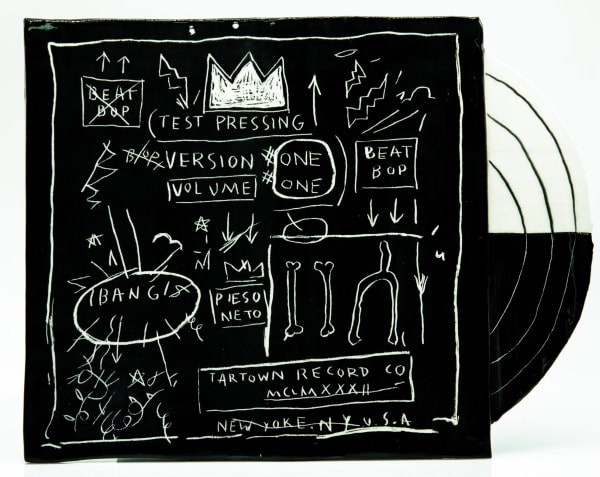 BEAT
BOP
(TEST PRESSING
VERSION # ONE
VOLUME # ONE
BEAT
BOP
BANG!
PIESO
NETO
TARTOWN RECORD CO
MCLMXXXII
NEW YOKE. N.Y U.S.A